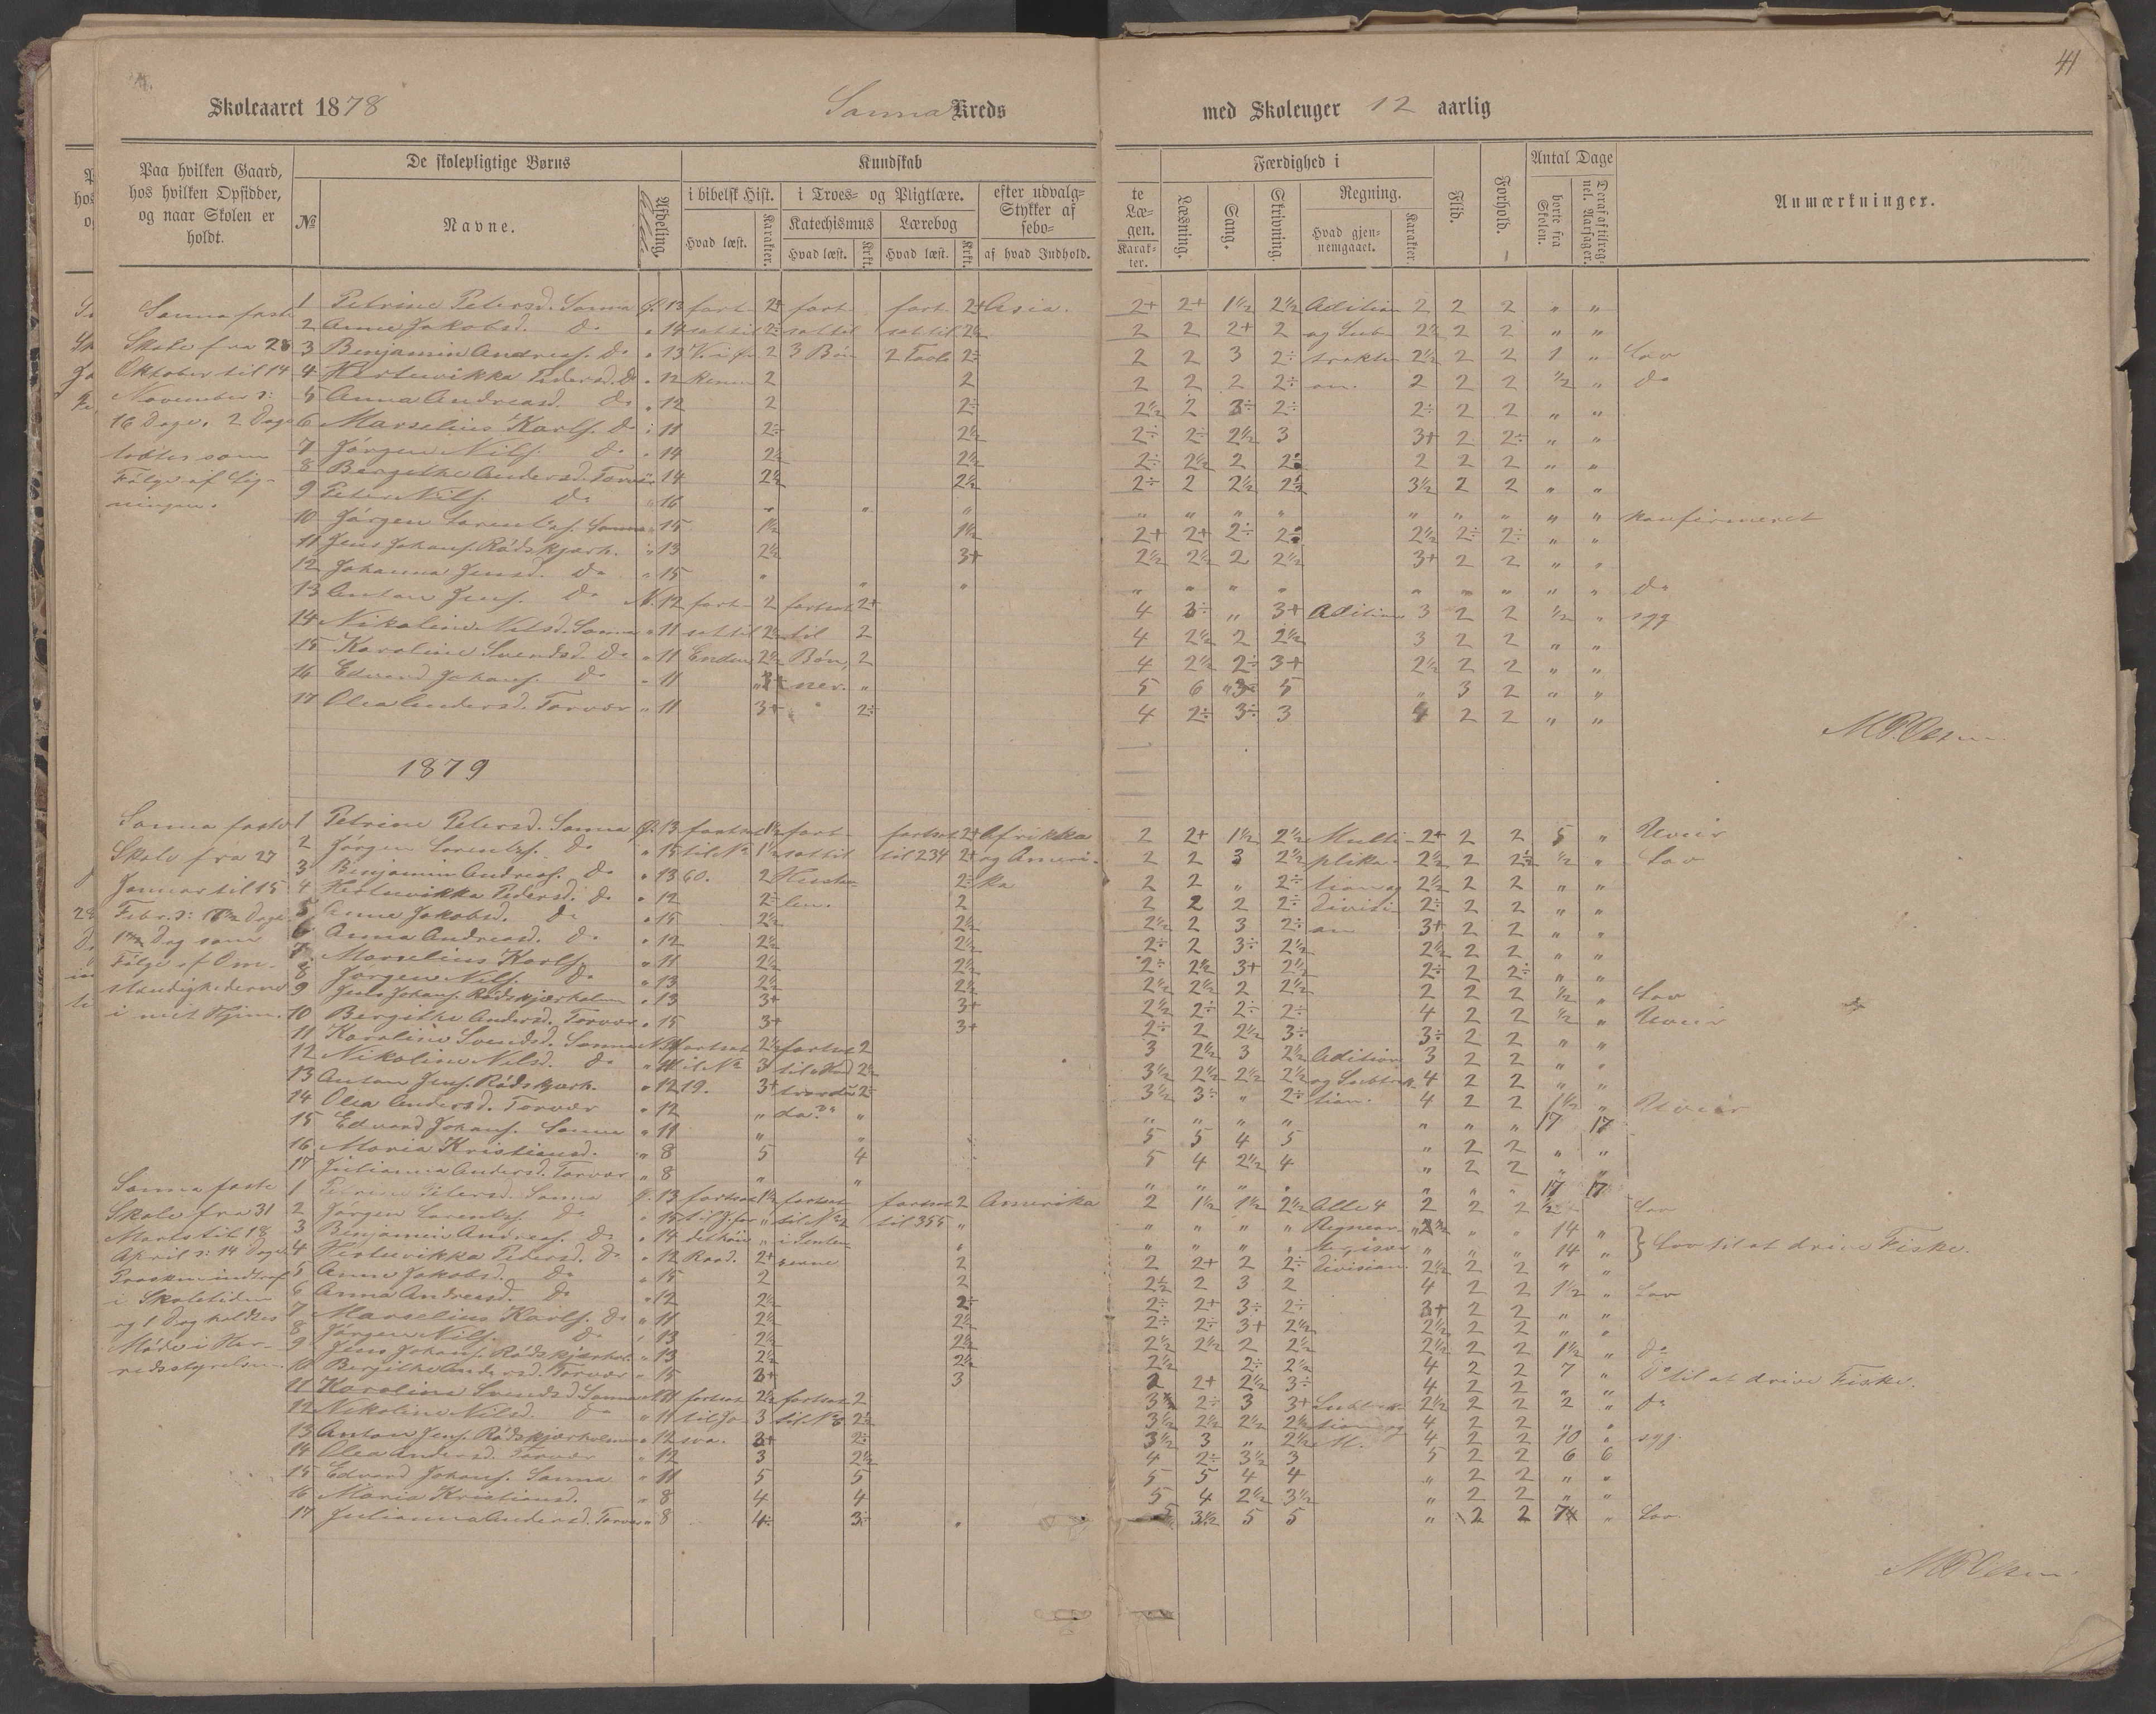 41
Skoleaaret 1878 Sanna Kreds med Skoleuger 12 aarlig
Paa hvilken Gaard, hos hvilken Opsidder, og naar Skolen er holdt.
De skolepligtige Børns
№ Navne. Afdeling.
Kundskab
i bibelsk Hist. i Troes- og Pligtlære. efter udvalg-te
Stykker af Læ-
sebo-gen.
Katechismus Lærebog
Hvad læst. Karakter. Hvad læst. Krkt. Hvad læst. Krkt. af hvad Indhold. Karak-ter.
Færdighed i
Læsning. Sang. Skrivning. Regning.
Hvad gjen-nemgaaet. Karakter.
Flid. Forhold. Antal Dage
borte fra Skolen. Deraf af tilreg-nel. Aarsager.
Anmærkninger.
Sanna faste
Skole fra 28
Oktober til 14
November ɔ:
16 Dage. 2 Dage
tabtes som
Følge af Lig-
ningen.
1 Petrine Petersd. Sanna Ø. 13 fort- 2+ fort- fort- 2+ Asia. 2+ 2+ 1½ 2½ Adition 2 2 2 „ „
2 Anne Jakobsd. do „ 14 sat til 2÷ sat til sat til 2½ 2 2 2+ 2 og Sub- 2½ 2 2 „ „
3 Benjamin Andreas. do „ 13 2 3 Bøn 2 Tavle 2÷ 2 2 3 2÷ trakti- 2½ 2 2 1 „ Lov
4 Hertuvikka Pedersd. do „ 12 2 2 2 2 2 2÷ on. 2 2 2 ½ „ do
5 Anna Andreasd. do „ 12 2 2÷ 2½ 2 3÷ 2÷ 2÷ 2 2 „ „
6 Marselius Karls. do „ 11 2÷ 2½ 2÷ 2÷ 2½ 3 3+ 2 2÷ „ „
7 Jørgen Nils. do „ 14 2½ 2½ 2÷ 2½ 2 2÷ 2 2 2 „ „
8 Bergithe Andersd. Torvær „ 14 2½ 2½ 2÷ 2 2½ 2½ 3½ 2 2 „ „
9 Peter Nils. do „ 16 „ „ „ „ „ „ „ „ „ „ „ „ konfirmeret
10 Jørgen Lorents. Sanna „ 15 1½ 1½ 2+ 2+ 2÷ 2÷ 2½ 2÷ 2÷ „ „
11 Jens Johans. Rødskjærh. „ 13 2½ 3+ 2½ 2½ 2 2½ 3+ 2 2 „ „
12 Johanna Jensd. do „ 15 „ „ „ „ „ „ „ „ „ „ „ „ do
13 Anton Jens. do N. 12 fort- 2 fortsat 2+ 4 3÷ „ 3+ Adition 3 2 2 ½ „ syg
14 Nikoline Nilsd. Sanna „ 11 sat til 2½ til 2 4 2½ 2 2½ 3 2 2 „ „
15 Karoline Svendsd. do „ 11 Enden 2½ Bøn- 2 4 2½ 2÷ 3+ 2½ 2 2 „ „
16 Edvard Johans. do „ 11 ner. „ 5 6 5 „ 3 2 „ „
17 Olea Andersd. Torvær „ 11 3+ 2÷ 4 2÷ 3÷ 3 4 2 2 „ „
1879
Sanna faste
Skole fra 27
Januar til 15
Febr. ɔ: Dage.
Dag som
Følge af Om-
stændighederne
i mit Hjem.
1 Petrine Petersd. Sanna Ø. 13 fortsat 1½ fort- fortsat 2+ Afrikka 2 2+ 1½ 2½ Multi- 2+ 2 2 5 „ Uveir
2 Jørgen Lorents. do „ 15 til № 1½ sat til til 234 2+ og Ameri- 2 2 3 2½ plika- 2½ 2 2½ ½ „ Lov
3 Benjamin Andreas. do „ 13 60. 2 Husta- 2÷ ka 2 2 „ 2÷ tion og 2½ 2 2 „ „
4 Hertuvikka Pedersd. do „ 12 2÷ len. 2 2 2 2 2÷ Divisi- 2÷ 2 2 „ „
5 Anne Jakobsd. do „ 15 2½ 2½ 2½ 2 3 2÷ on 3+ 2 2 „ „
6 Anna Andreasd. do „ 12 2½ 2½ 2÷ 2 3÷ 2½ 2½ 2 2 „ „
7 Marselius Karls. „ 11 2½ 2½ 2÷ 2½ 3+ 2½ 2÷ 2 2÷ „ „
8 Jørgen Nils. do „ 13 2½ 2½ 2½ 2½ 2 2½ 2 2 2 ½ „ Lov
9 Jens Johans. Rødskjærholmen „ 13 3+ 3+ 2½ 2÷ 2÷ 2÷ 4 2 2 ½ „ Uveir
10 Bergithe Andersd. Torvær „ 15 3+ 3+ 2÷ 2 2½ 3÷ 3÷ 2 2 „ „
11 Karoline Svendsd. Sanna N. 11 fortsat 2½ fortsat 2 3 2½ 3 2½ Adition 3 2 2 „ „
12 Nikoline Nilsd. do „ 11 til № 3 til Hvad 2½ 3½ 2½ 2½ 2½ og Subtrak- 4 2 2 „ „
13 Anton Jens. Rødskjærh. „ 12 19. 3+ 2÷ 3½ 3÷ „ 2÷ tion. 4 2 2 1½ „ Uveir
14 Olea Andersd. Torvær „ 12 „ da? „ „ „ „ „ „ „ „ 17 17
15 Edvard Johans. Sanna „ 11 „ „ 5 5 4 5 „ 2 2 „ „
16 Maria Kristiansd. „ 8 5 4 5 4 2½ 4 „ 2 2 „ „
17 Julianna Andersd. Torvær „ 8 „ „ „ „ „ „ „ „ „ 17 17
Sanna faste
Skole fra 31
Marts til 18
April ɔ: 14 Dage.
Paasken indtraf
i Skoletiden
og 1 Dag holdtes
Møde i Her-
redsstyrelsen.
1 Petrine Petersd. Sanna Ø. 13 fortsat 1½ fortsat fortsat 2 Amerika 2 1½ 1½ 2½ Alle 4 2 2 2 ½ Lov
2 Jørgen Lorents. do „ 15 til J. for „ til № 2 til 355 „ „ „ „ „ Regnear- „ „ „ 14 „
3 Benjamin Andreas. do „ 14 det høie „ i Senten- „ „ „ „ „ ter, især „ „ „ 14 „ } Lov til at drive Fiske.
4 Hertuvikka Pedersd. do „ 12 Raad. 2+ serne 2 2 2+ 2 2÷ Division. 2½ 2 2 „ „
5 Anne Jakobsd. do „ 15 2 2 2½ 2 3 2 4 2 2 1½ „ Lov
6 Anna Andreasd. do „ 12 2½ 2÷ 2÷ 2+ 3÷ 2÷ 3+ 2 2 „ „
7 Marselius Karls. do „ 11 2½ 2½ 2÷ 2÷ 3+ 2½ 2½ 2 2 „ „
8 Jørgen Nils. do „ 13 2½ 2½ 2½ 2½ 2 2½ 2½ 2 2 1½ „ do
9 Jens Johans. Rødskjærhol. „ 13 2½ 2½ 2½ 2÷ 2½ 4 2 2 7 „ Do til at drive Fiske.
10 Bergithe Andersd. Torvær „ 15 3+ 3 2 2+ 2½ 3÷ 4 2 2 „ „
11 Karoline Svendsd. Sanna N. 11 fortsat 2½ fortsat 2 2÷ 3 3+ Subtrak- 2½ 2 2 2 „ do
12 Nikoline Nilsd. do „ 11 til Jo- 3 til № 2½ 3½ 2½ 2½ 2½ tion og 4 2 2 „ „
13 Anton Jens. Rødskjærholmen „ 12 sva. 3+ 2÷ 3½ 3 „ 2½ M. 4 2 2 10 „ syg.
14 Olea Andersd. Torvær „ 12 3 2½ 4 2÷ 3½ 3 5 2 2 6 6
15 Edvard Johans. Sanna „ 11 5 5 5 5 4 4 „ 2 2 „ „
16 Maria Kristiansd. „ 8 4 4 5 4 2½ 3½ „ 2 2 „ „
17 Julianna Andersd. Torvær „ 8 4÷ 3÷ 5 3½ 5 5 „ 2 2 „ Lov.